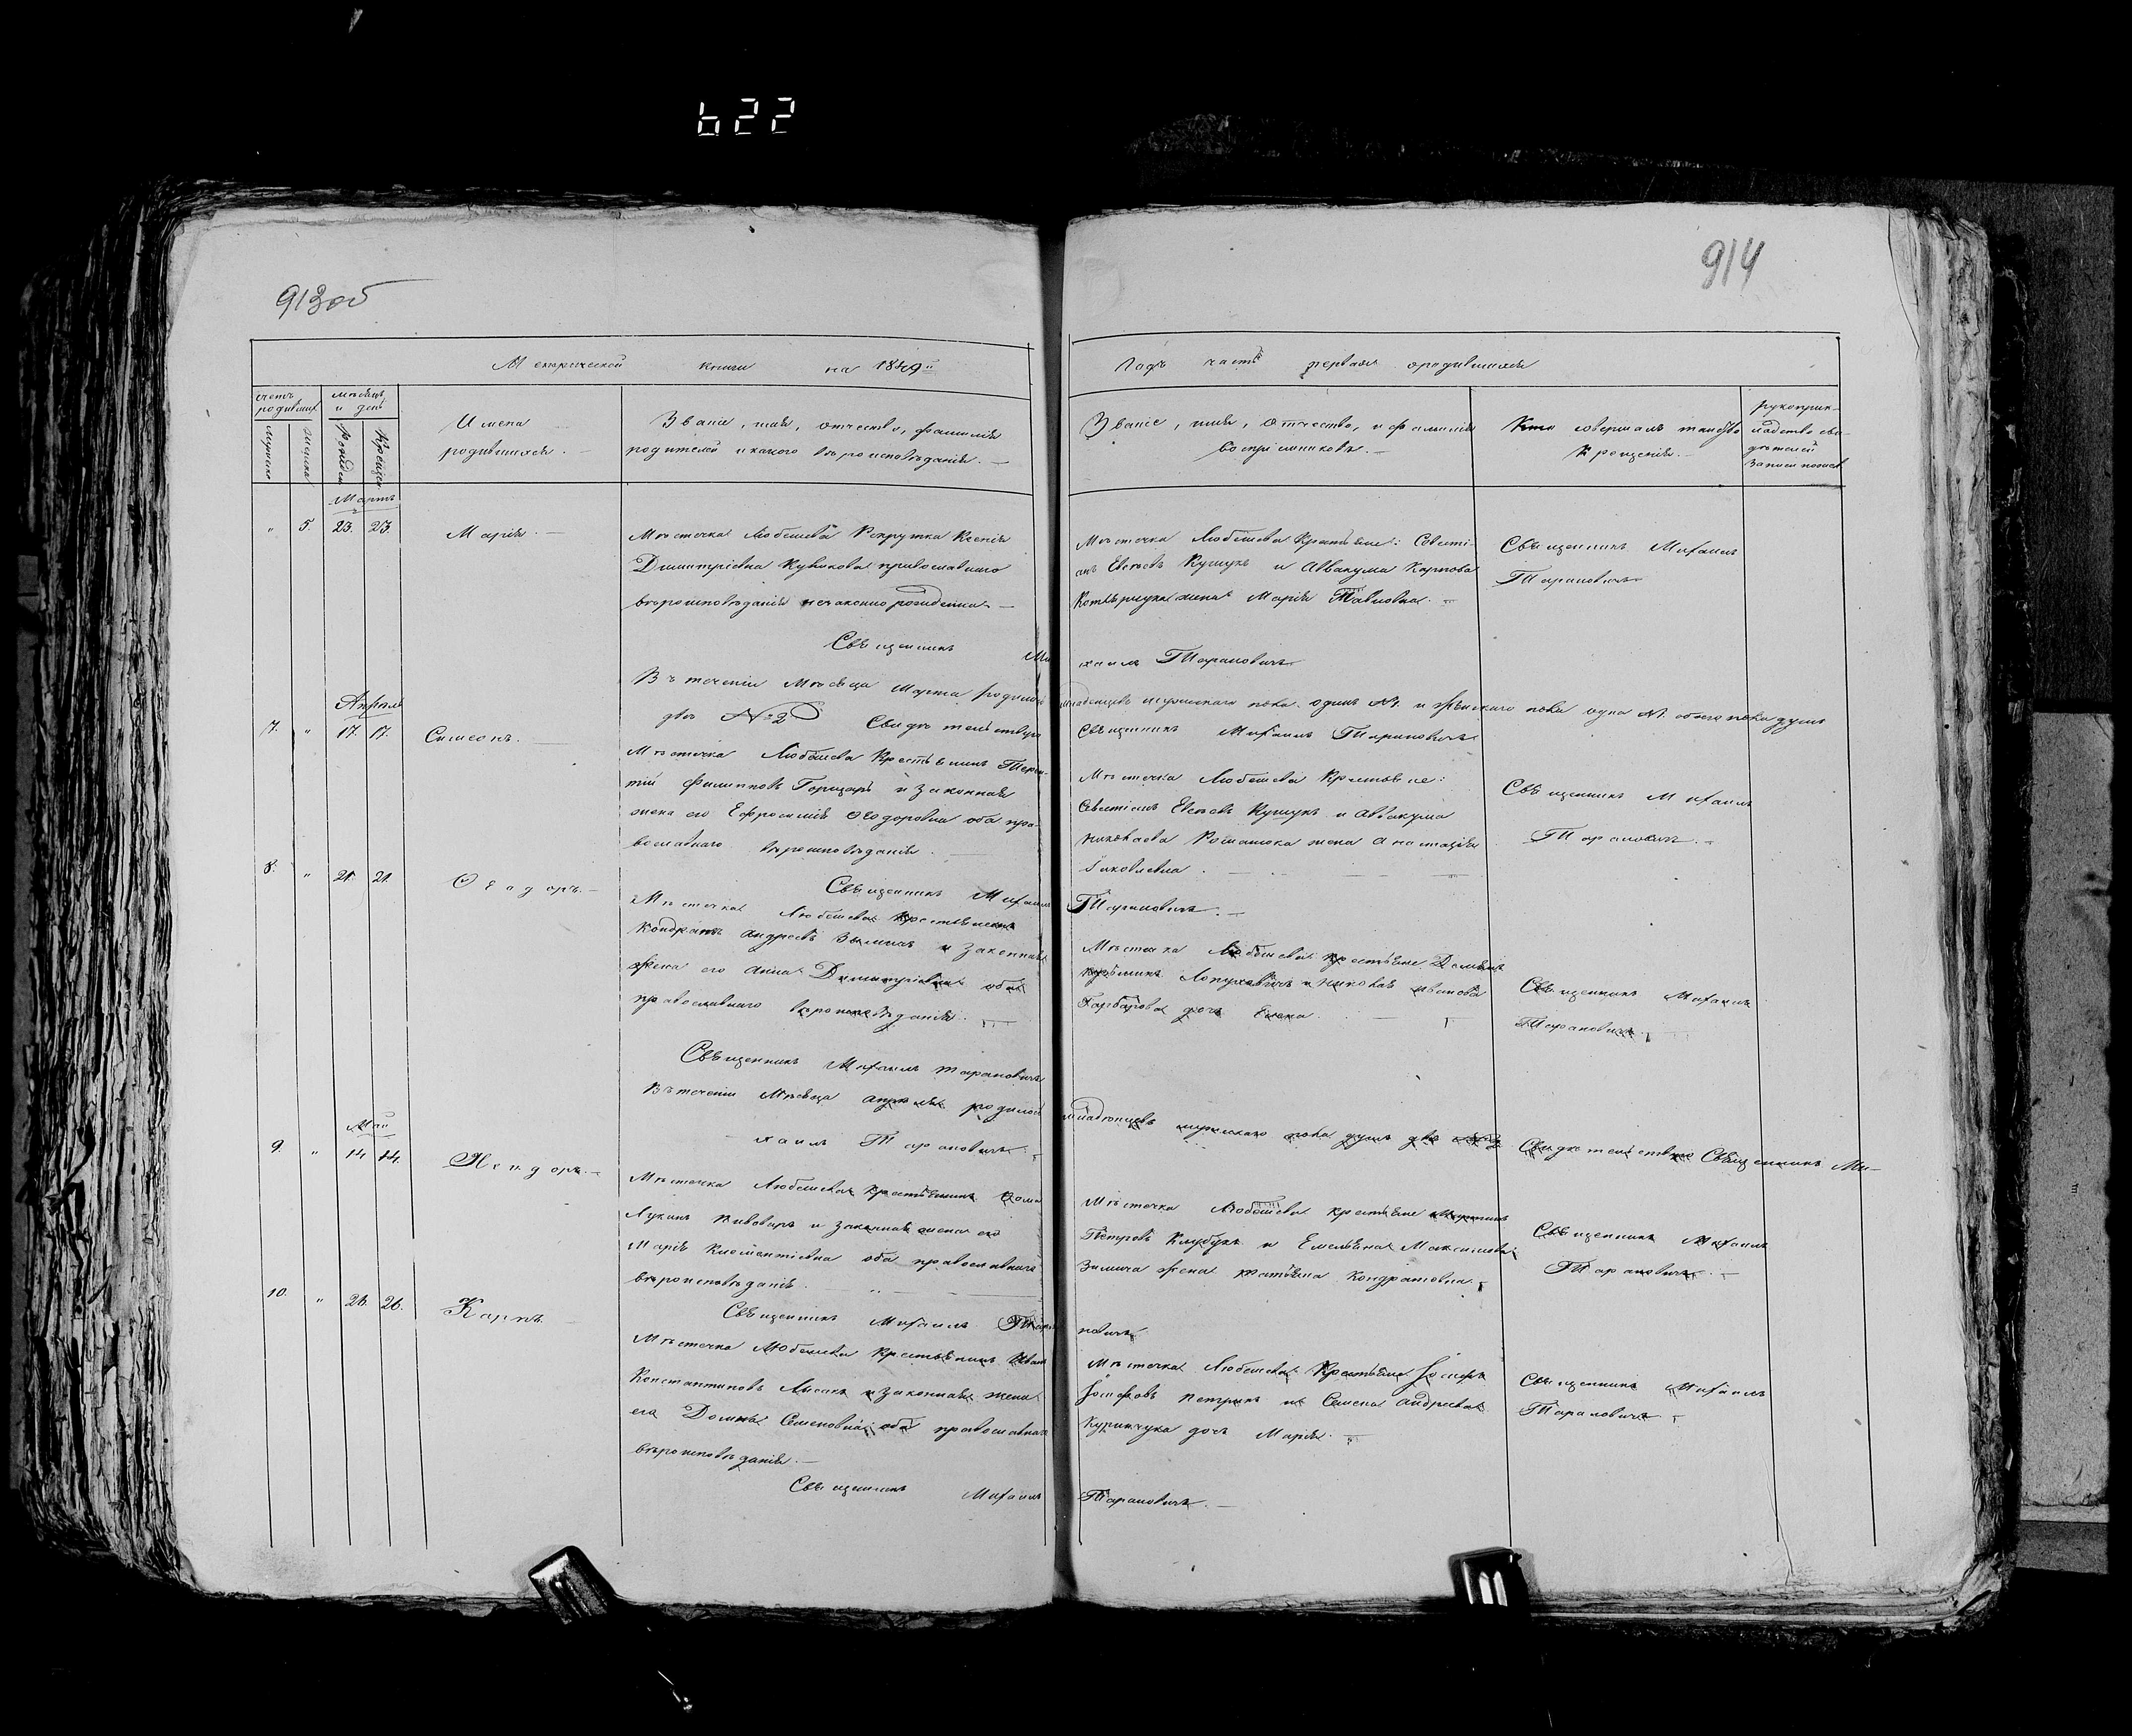 622
913об
914
Метрической книги на 1849й
Годъ часть первая о родившихся
счетъ родившихся
мѣсяцъ и день
мужеска
женска
рожденія
крещенія
Имена родившихся. —
Званіе, имя, отчество, фамилія
родителей и какого вѣроисповѣданія. —
Званіе, имя, отчество, и фамилія
воспріемниковъ. —
Кто совершалъ таинство
крещенія. —
рукоприк-
ладство сви-
дѣтелей
записи
Мартъ
" 5. 23. 23.
Марія. —
Мѣстечка Любешева Рекрутка Ксенія
Димитріевна православнаго
вѣроисповѣданія незаконно рожденна. —
Мѣстечка Любешева Крестьяне: Севасті-
анъ Евсѣевъ Кушукъ и Аввакума Карпова
жена Марія Павловна. —
Священникъ Михаилъ
Тарановичъ
Священникъ Ми
хаилъ Тарановичъ
Въ теченіи Мѣсяца Марта родилось младенцевъ мужескаго пола одинъ №1. и женскаго пола одна №1. обоего пола душъ
двѣ №2 Свидѣтельствую Священникъ Михаилъ Тарановичъ
Апрѣль
7. " 17. 17.
Симеонъ. —
Мѣстечка Любешева Крестьянинъ Терен-
тій Филиповъ Гончаръ и законная
жена его Ефросинія Ѳеодоровна оба пра-
вославнаго вѣроисповѣданія. —
Мѣстечка Любешева Крестьяне:
Севастіанъ Евсѣевъ Кушукъ и Аввакума
Николаева Романюка жена Анастасія
Яковлевна. —
Священникъ Михаилъ
Тарановичъ. —
Священникъ Михаилъ
Тарановичъ. —
8. " 21. 21.
Ѳеодоръ. —
Мѣстечка Любешева крестьянинъ
Кондратъ Андреевъ Зыличъ и законная
жена его Анна Димитріевна оба
православнаго вѣроисповѣданія. —
Мѣстечка Любешева крестьяне
Лопуховичъ и Николая Иванова
Гарбарова дочь Елена. —
Священникъ Михаилъ
Тарановичъ.
Священникъ Михаилъ Тарановичъ
Въ теченіи Мѣсяца апрѣля родилось младенцевъ мужескаго пола душъ двѣ №2 Свидѣтельствую Священникъ Ми-
хаилъ Тарановичъ.
Май
9. " 14. 14.
Исидоръ. —
Мѣстечка Любешева крестьянинъ Ѳома
Лукинъ Пивоваръ и законная жена его
Марія Климентіевна оба православнаго
вѣроисповѣданія.
Мѣстечка Любешева крестьяне
Петровъ Клубукъ и Емельяна Максимова
Зылича жена Татьяна Кондратовна.
Священникъ Михаилъ
Тарановичъ. —
Священникъ Михаилъ Тара
новичъ
10. " 26. 26.
Карпъ.
Мѣстечка Любешева крестьянинъ Иванъ
Константиновъ Лысакъ и законная жена
его Домна Семеновна оба православнаго
вѣроисповѣданія. —
Мѣстечка Любешева Крестьяне Іосифъ
Іосифовъ Петрикъ и Семена Андреева
дочь Марія. —
Священникъ Михаилъ
Тарановичъ
Священникъ Михаилъ
Тарановичъ. —